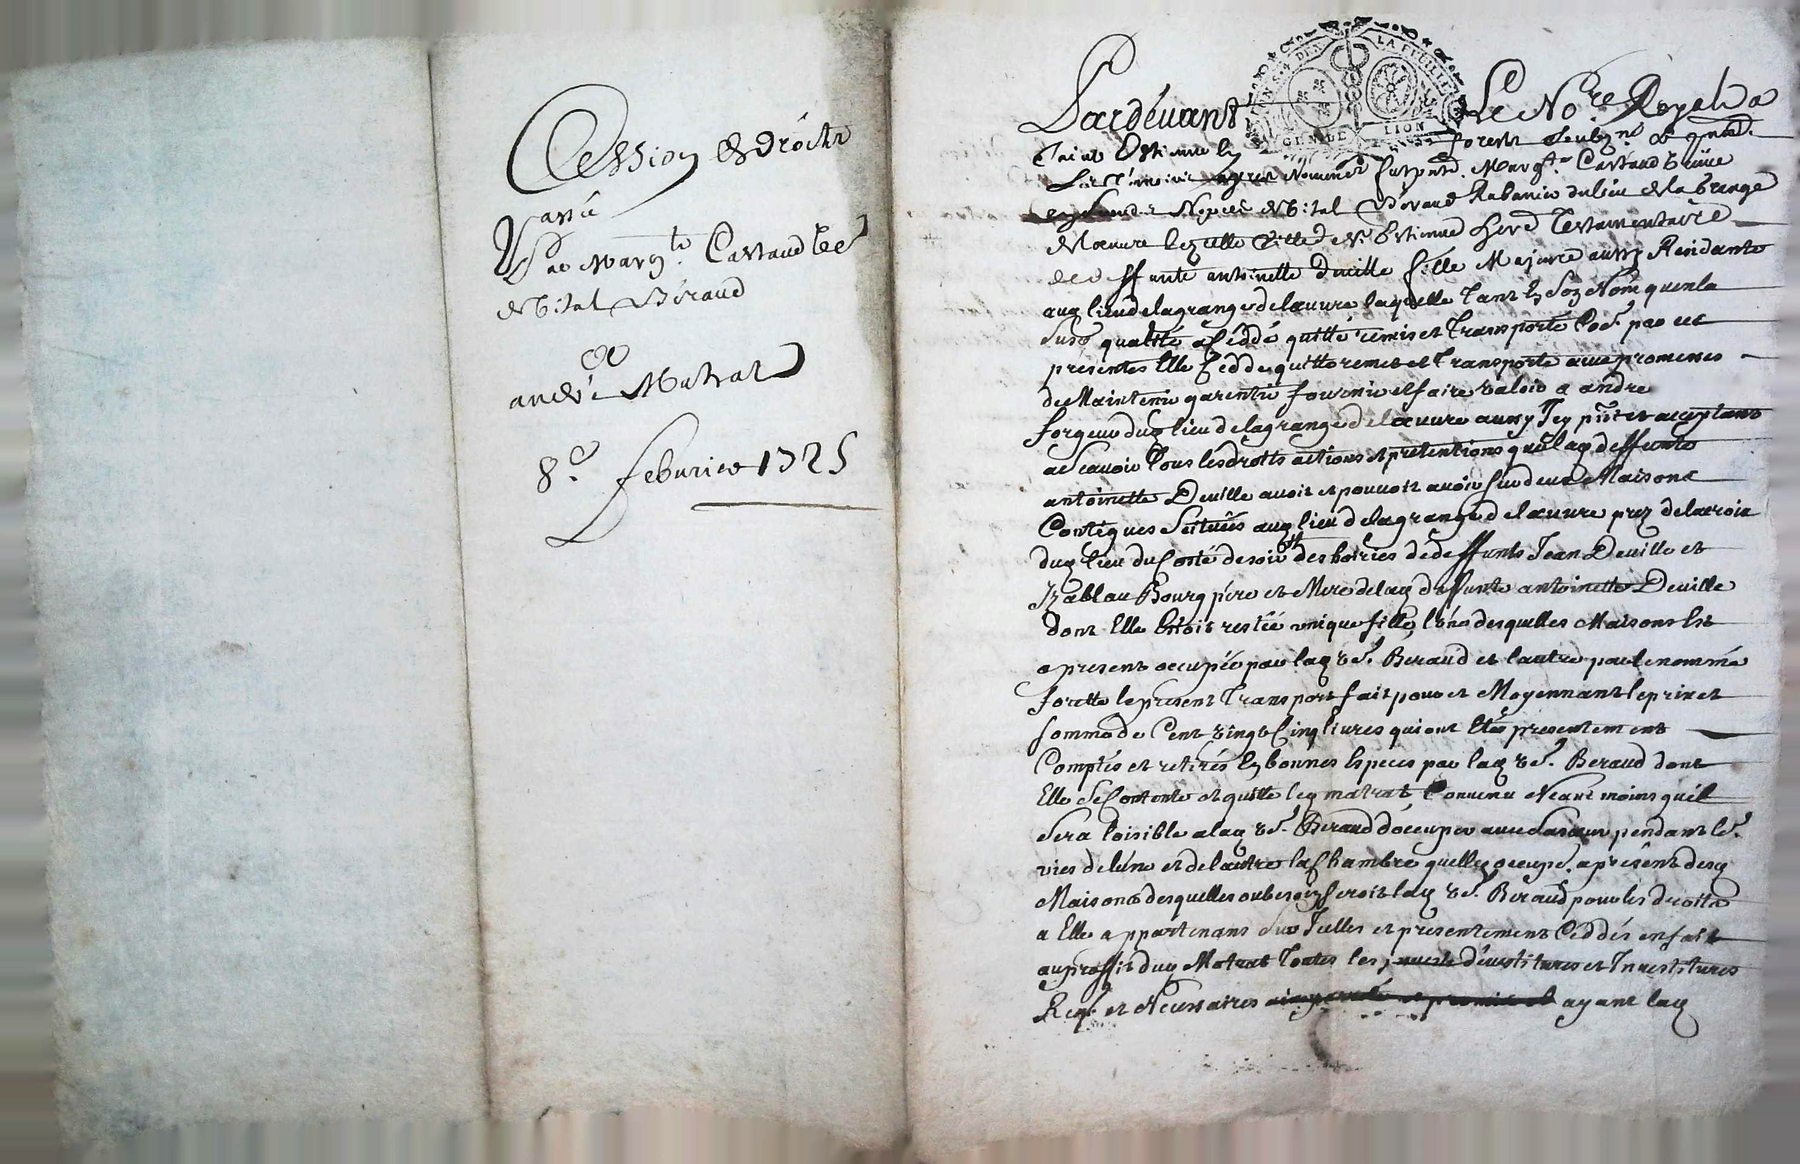 Cession de droits
Passée
Par Marg.te Castaud vve
de Vital Béraud
a
andré Matrat
8.e febvrier 1725
GEN DE LION
LA FEUILLE
Pardevant Le No.re Royal a
Saint Estienne en forest soubz.né
les témoins Nommés fut pnte. Marg.te Castaud veuve
de Vital Beraud Rubanier du lieu de la Grange
de l'oeuvre lez cette Ville de St Estienne herre Testamentaire
de deffunte antoinette Deville fille Majeure aussy Residante
aud lieu de la grange de l'oeuvre laquelle Tant en son Nom qu'en la
susd qualité a Céddé quitté remis et Transporté Co.e par ces
presentes Elle Cedde quitte remet et Transporte avec promesses
de Maintenir garentir fournir et faire valoir a andre
forgeur dud lieu de la grange de l'oeuvre aussy Icy pnt et acceptant
a scavoir Tous les droits actions et prétentions que lad deffunte
antoinette Deville avoit et pouvoit avoir sur deux Maisons
Contigues Scituées aud lieu de la grange de l'oeuvre prez de la croix
dud lieu du Costé de soir des hoiries de deffunts Jean Deville et
Izabeau Bourg père et Mere de lad deffunte antoinette Deville
dont Elle Estoit restée unique fille, l'une desquelles Maisons Est
a present occupée par lad ve. Beraud et lautre par le nommé
forette le present Transport fait pour et Moyennant le prix et
somme de Cent vingt Cinq livres qui ont Esté presentement
Comptés et retirés En bonnes Especes par lad ve. Beraud dont
Elle Se Contente et quitte led matrat Convenu Neant moins quil
sera loisible a lad ve. Beraud d'occuper avec sa soeur pendant le.
vies de l'une et de l'autre la Chambre quelle occupe a présent desd
Maisons desquelles ou besoin seroit lad ve. Beraud pour les droits
a Elle appartenans Sur Icelles et presentement Céddés en fait
au proffit dud Matrat Toutes les devestitures et Investitures
Req. et Necessaires ayant lad